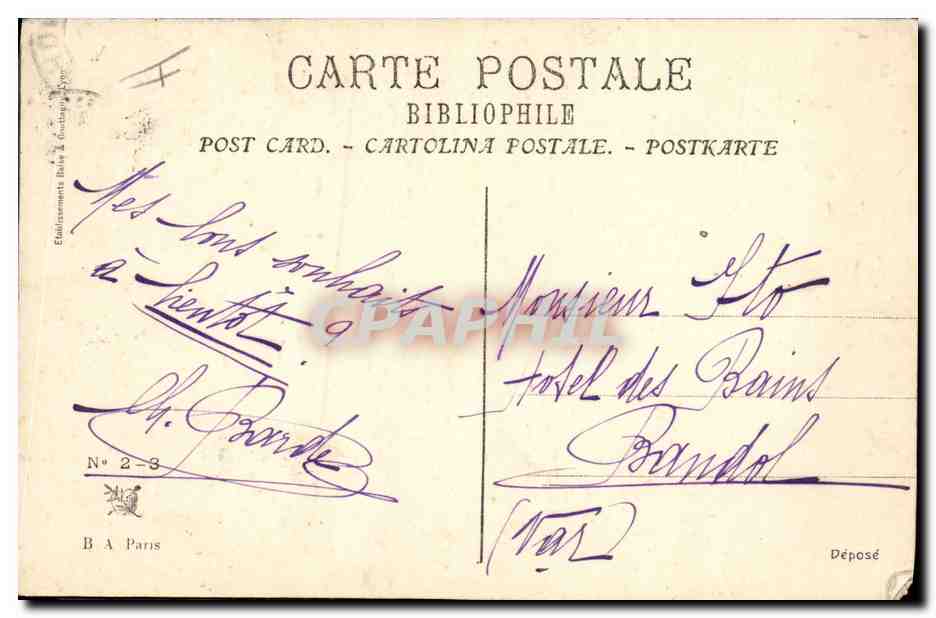 CARTE POSTALE
BIBLIOPHILE
POST CARD. - CARTOLINA POSTALE. - POSTKARTE
Etablissements Baise & Gouttagny, Lyon
Mes bons souhaits
à bientôt
Ch. Barde
Monsieur Ito
Hotel des Bains
Bandol
(Var)
N° 2-3
B A Paris
Déposé
CPAPHIL